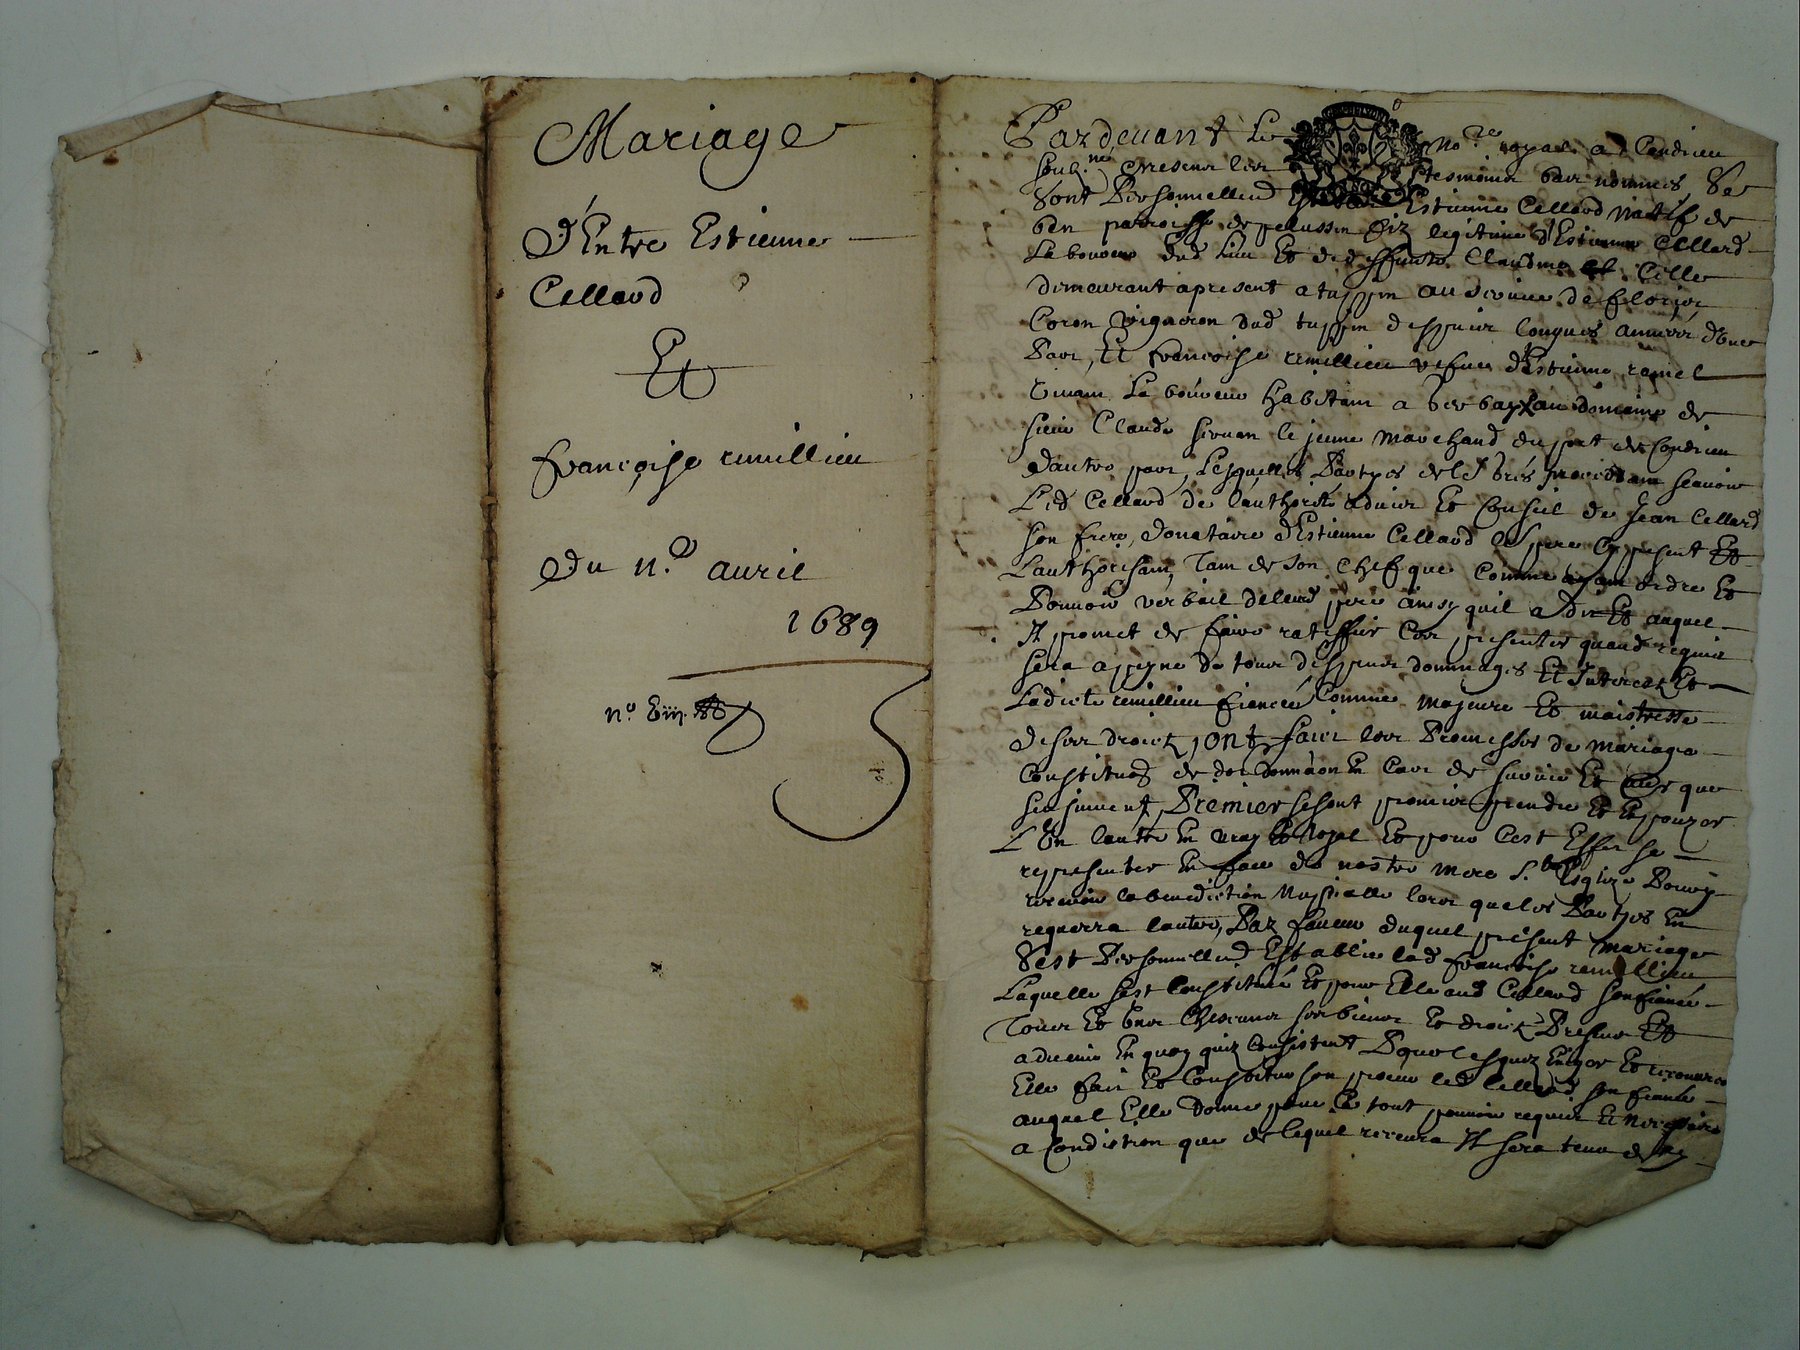 Mariage
D'Entre Estienne
Cellard
Et
françoise remillieu
Du 11.e auril
1689
n.o
Pardeuant Le No.re royal a Condrieu
soub.ne presens les tesmoins bas nommés Se
Sont Personnellem.d Estienne Cellard natif de
parroisse de pelussin fiz legitime d'Estienne Cellard
Laboureur dud lieu Et de deffuncte Claudine
demeurant a present a tuppin au seruice de
Coron vigneron dud tuppin despuis longues années d'une
Part, Et françoise remillieu vefue d'Estienne ramel
viuant Laboureur habitant a au domaine de
sieur Claude le jeune marchand du port de Condrieu
dautre part, Lesquelles Partyes de leurs grés procedant scauoir
Led Cellard de lauthorité aduis Et Conseil de Jean Cellard
son frere, donataire d'Estienne Cellard le pere Cy present Et
Lauthorisant, Tant de son chef que Comme ayant ordre Et
Pouuoir verbail dele pere ainsy quil a dit Et auquel
Il promet de faire ratiffier Ces presentes quand requis
sera a peyne de tous despens dommages Et Interestz Et
Ladicte remillieu fiancée Comme majeure Et maistresse
de ses droictz, ont faict les Promesses de mariage
Constituõn de dot donnaõn En Cas de suruie Et autres que
sensuiuent, Premier se sont promis prendre Et Espouzer
L'Un lautre En vray Et loyal Et pour Cest Effet se
representer En face de nostre mere S.te Esglize Pour y
receuoir la benediction Nuptialle lors que les Partyes En
requerra lautre, Par faueur duquel present mariage
Sest Personnellem.d Establie lad françoise remillieu
Laquelle sest Constituée Et pour Elle aud Cellard son fiancé
Tous Et Uns Chescuns ses biens Et droictz Presens Et
aduenir En quoy quiz Consistent Pour lesquez Exiger Et recouurer
Elle fait Et Constitue son procur led Cellard son fiancé
auquel Elle donne pour Ce tout pouuoir requis Et necessaire
a Condiction que de lequel receura Il sera tenu de